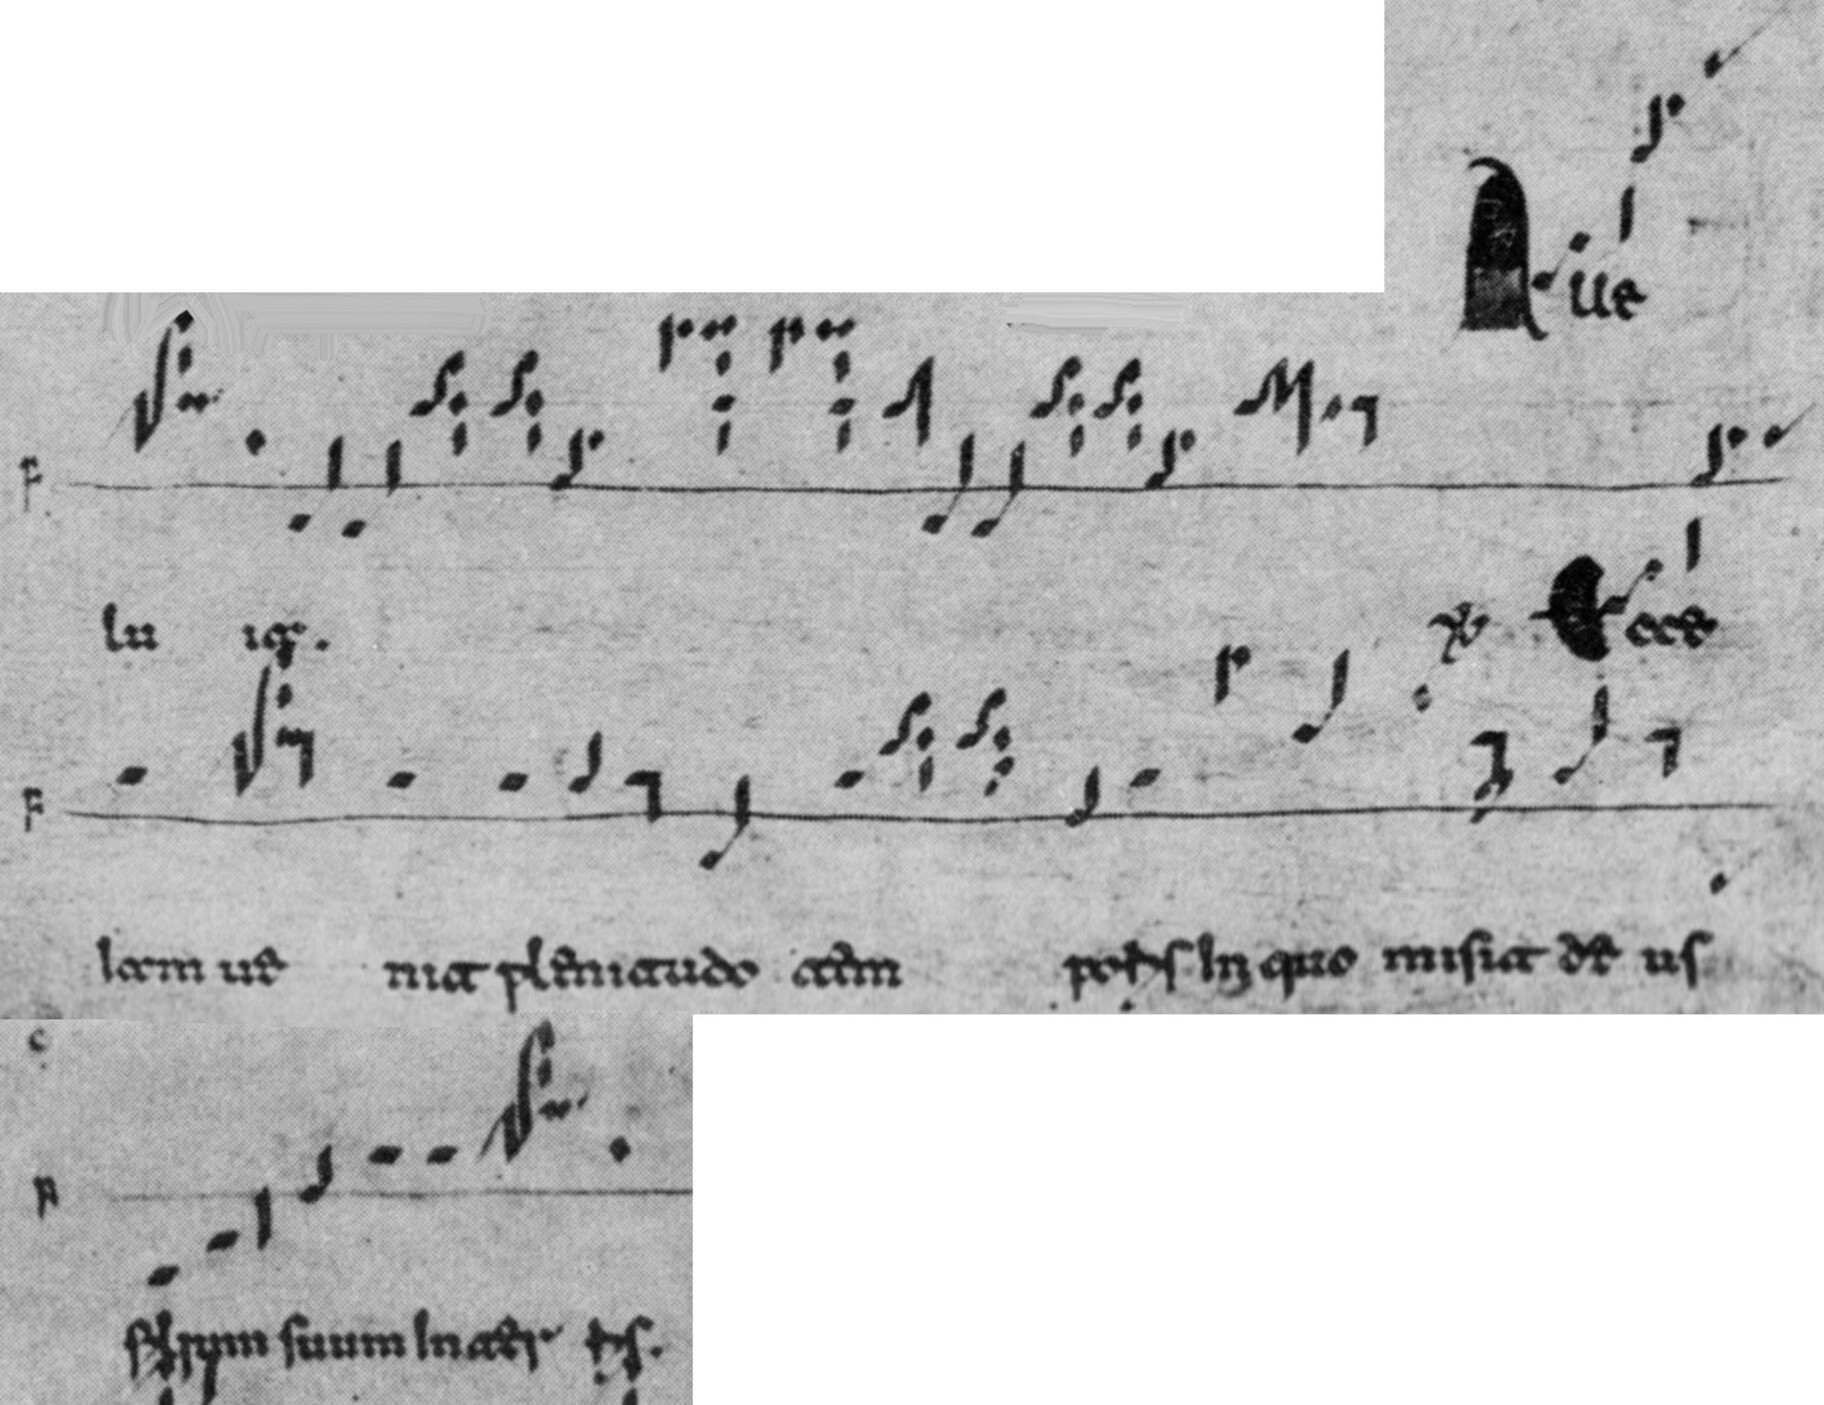 Alle
F
lu ia. ℣ Ecce
F
iam ue nit plenitudo tem poris In quo misit de us
c
F
filium suum In terris.